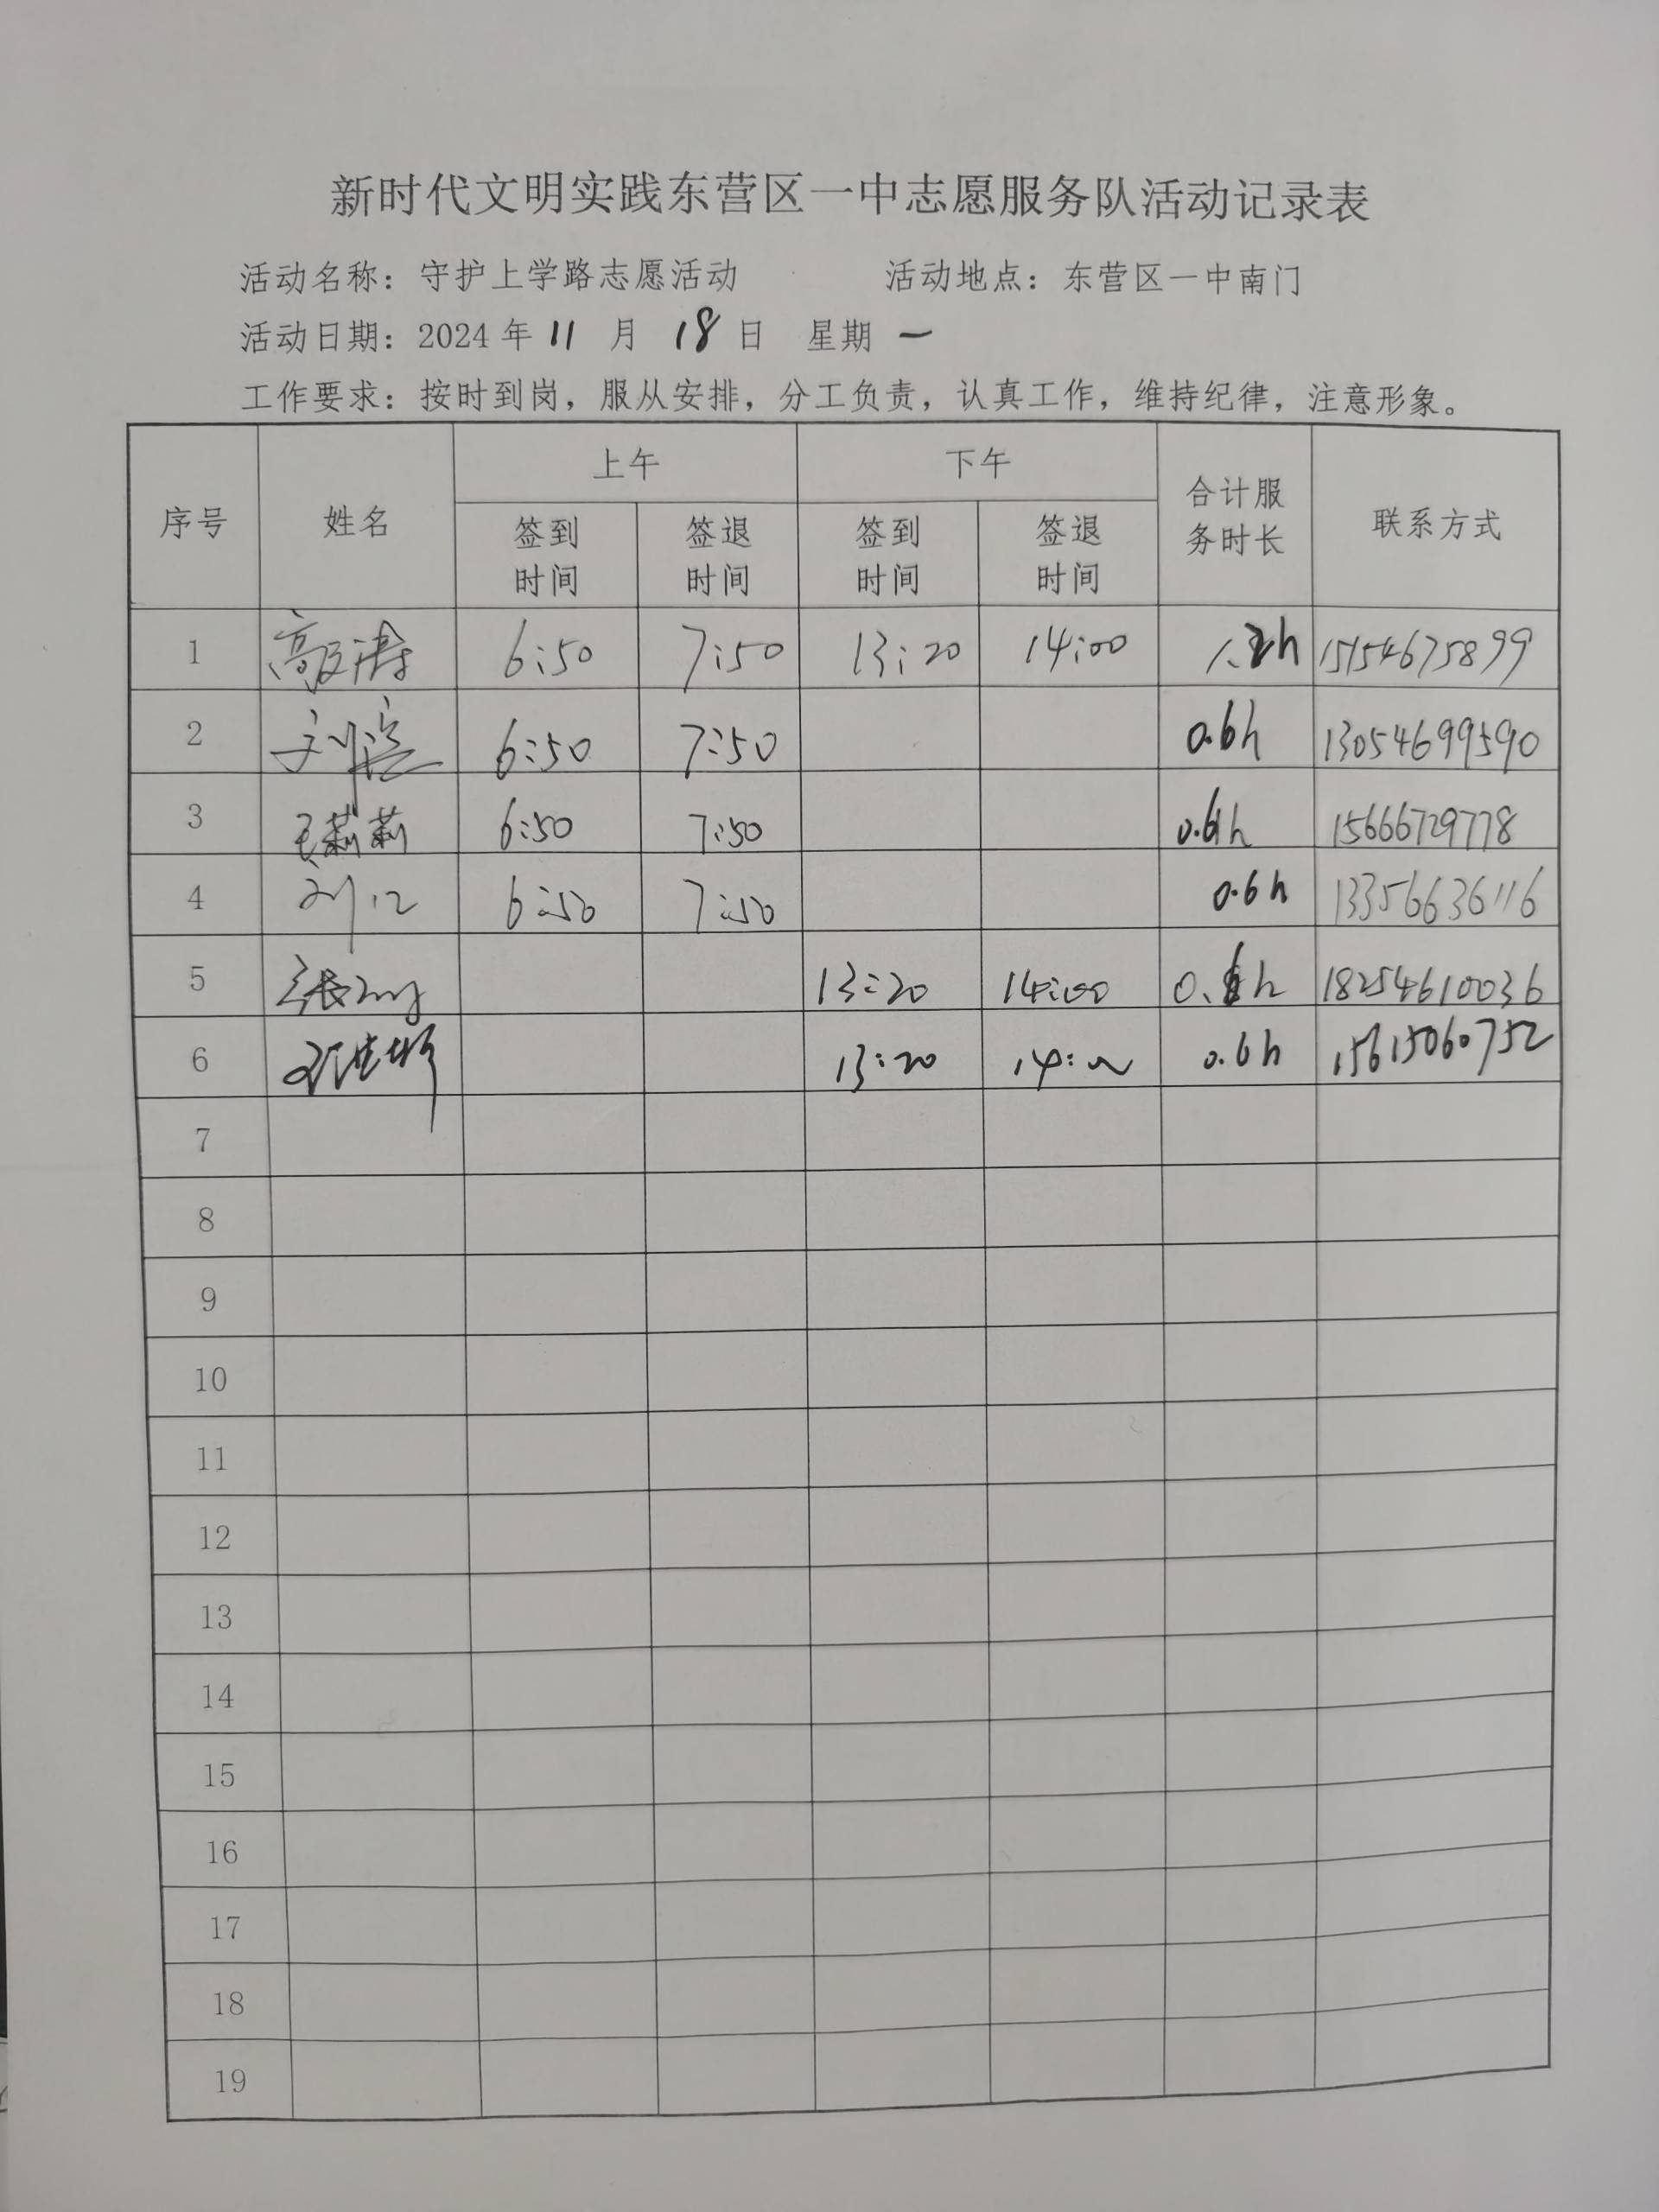 新时代文明实践东营区一中志愿服务队活动记录表
活动名称：守护上学路志愿活动 活动地点：东营区一中南门
活动日期：2024年 11 月 18 日 星期 一
工作要求：按时到岗，服从安排，分工负责，认真工作，维持纪律，注意形象。
序号 姓名 上午 下午 合计服务时长 联系方式
签到时间 签退时间 签到时间 签退时间
1 6:50 7:50 13:20 14:00 1.2h 15154675899
2 刘 6:50 7:50 0.6h 13054699590
3 王莉莉 6:50 7:50 0.6h 15666729778
4 刘江 6:50 7:50 0.6h 13356636116
5 张 13:20 14:00 0.6h 18254610036
6 13:20 14:00 0.6h 15615060752
7
8
9
10
11
12
13
14
15
16
17
18
19